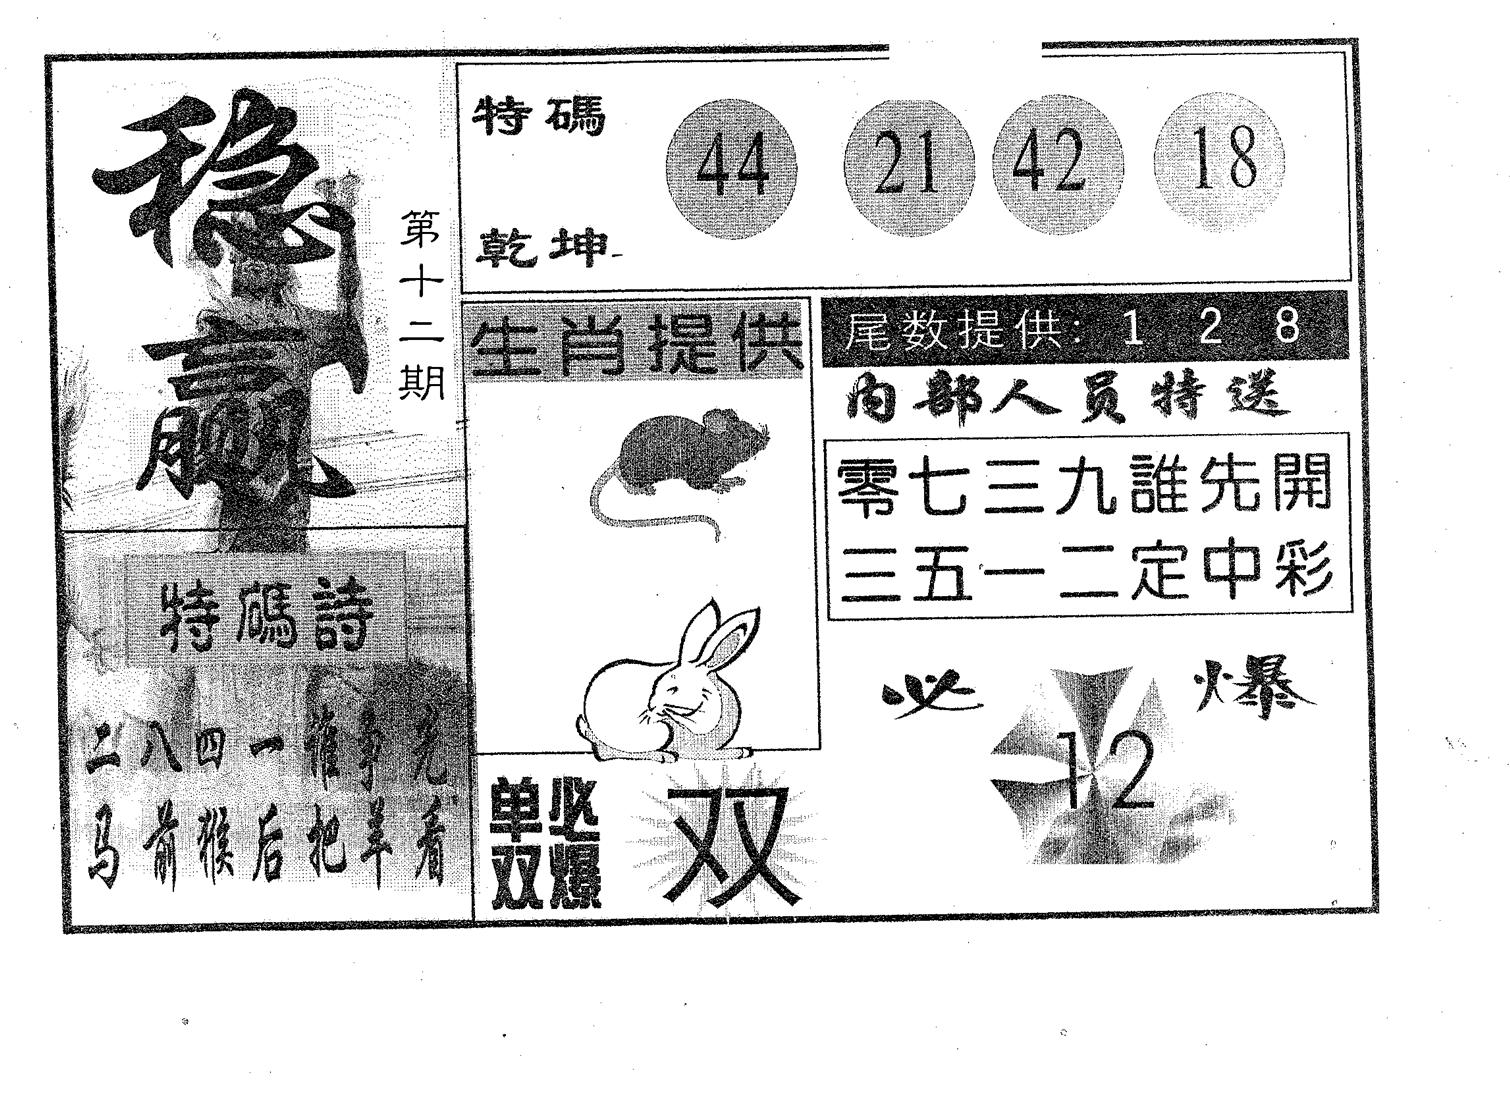 稳赢
第十二期
特碼
乾坤
44 21 42 18
生肖提供
尾数提供: 1 2 8
内部人员特送
零七三九誰先開
三五一二定中彩
特碼詩
二八四一誰争先
马前猴后把羊看
必爆
12
单双必爆
双